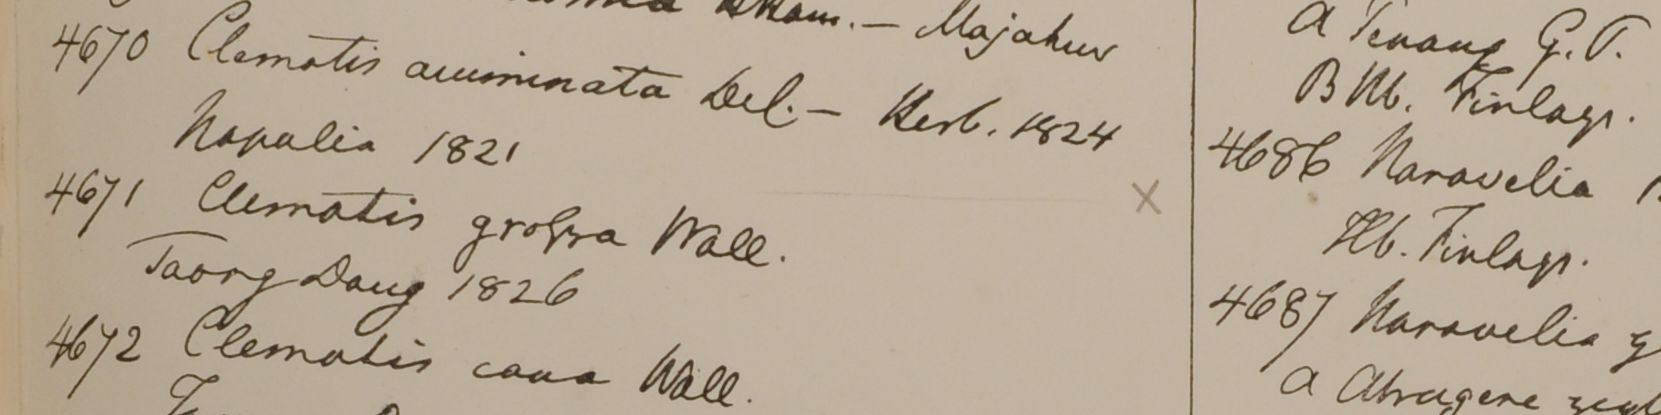 Majahuv
4670 Clematis acuminata Del. — Herb. 1824
Napalia 1821
4671 Clematis groſsa Wall.
Taong Dong 1826
4672 Clematis cana Wall.
a Penang G. P.
B Hb. Finlays.
4686 Naravelia
Hb. Finlays.
4687 Naravelia
a Atragene